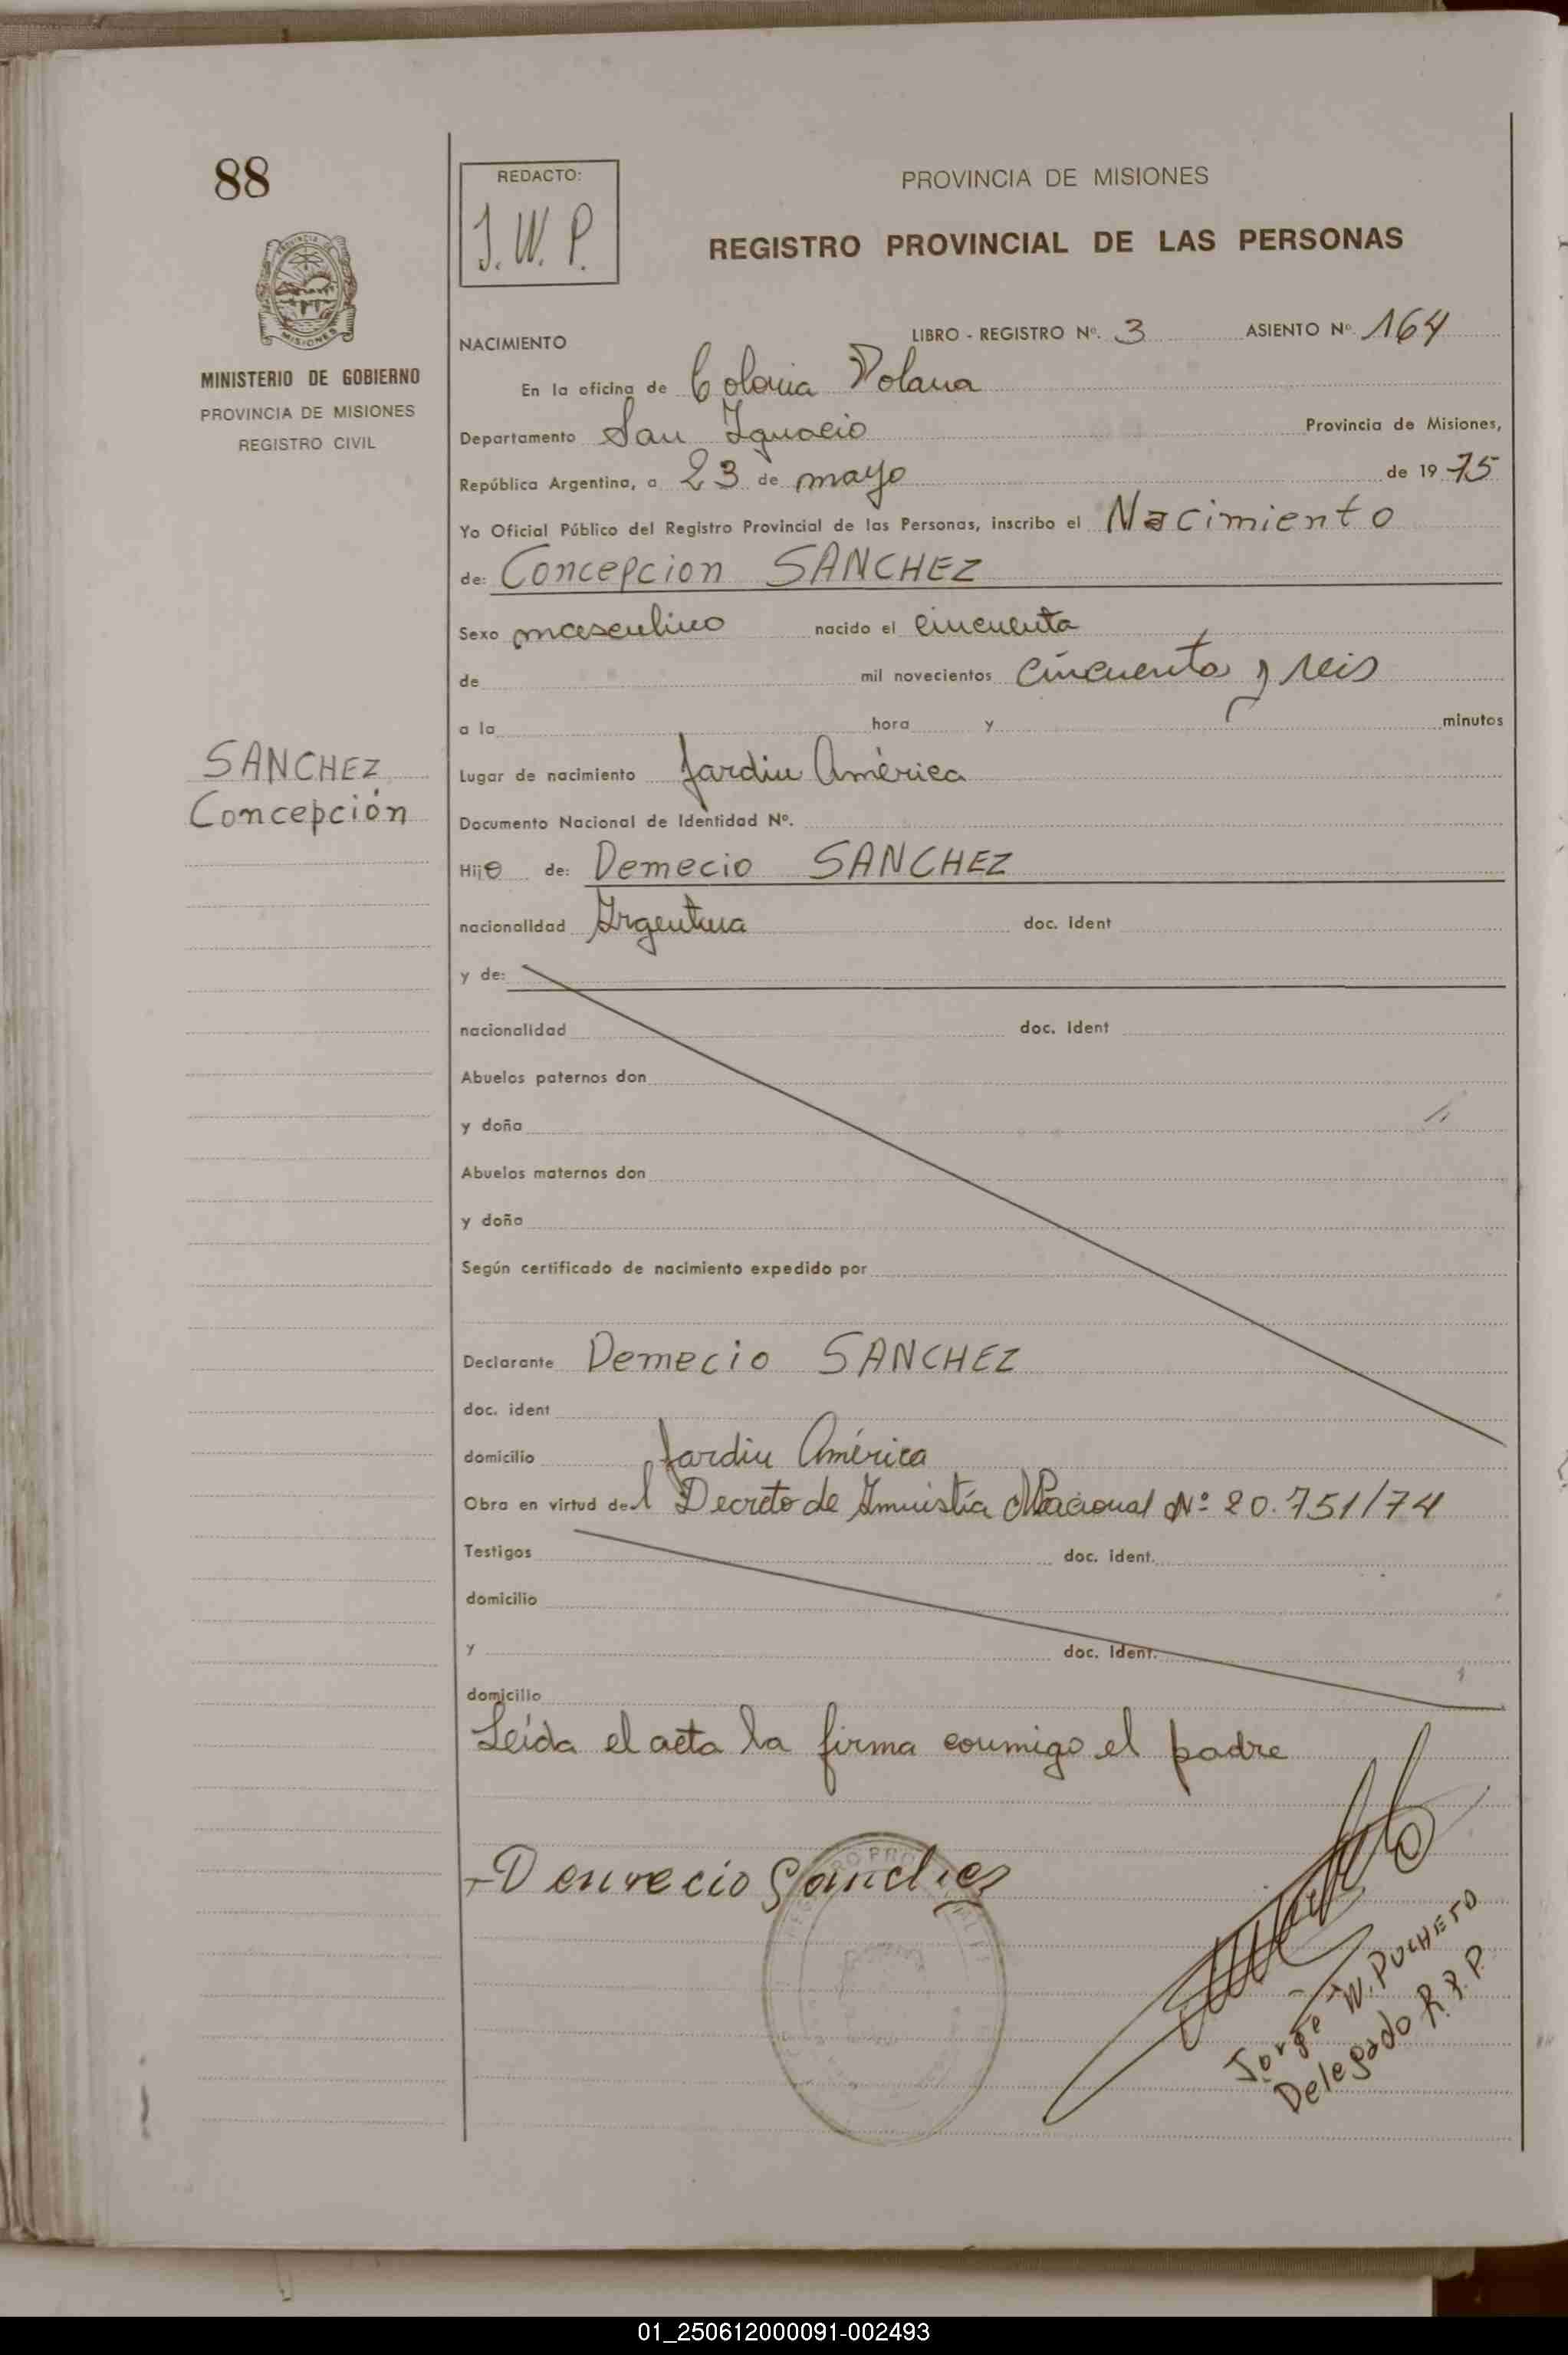 88
MINISTERIO DE GOBIERNO
PROVINCIA DE MISIONES
REGISTRO CIVIL
SANCHEZ
Concepción
REDACTO:
J.W.P.
PROVINCIA DE MISIONES
REGISTRO PROVINCIAL DE LAS PERSONAS
NACIMIENTO LIBRO - REGISTRO Nº. 3 ASIENTO Nº. 164
En la oficina de Colonia Polana
Departamento San Ignacio Provincia de Misiones,
República Argentina, a 23 de mayo de 19 75
Yo Oficial Público del Registro Provincial de las Personas, inscribo el Nacimiento
de: Concepcion SANCHEZ
Sexo masculino nacido el cincuenta
de mil novecientos cincuenta y seis
a la hora y minutos
Lugar de nacimiento Jardin América
Documento Nacional de Identidad Nº.
Hijo de: Demecio SANCHEZ
nacionalidad Argentina doc. ident
y de:
nacionalidad doc. ident
Abuelos paternos don
y doña
Abuelos maternos don
y doña
Según certificado de nacimiento expedido por
Declarante Demecio SANCHEZ
doc. ident
domicilio Jardin América
Obra en virtud del Decreto de Amnistía Nacional Nº 20.751/74
Testigos doc. ident.
domicilio
y doc. ident.
domicilio
Leída el acta la firma conmigo el padre
Demecio Sanchez
Jorge W. PUCHETO
Delegado R.P.P.
01_250612000091-002493